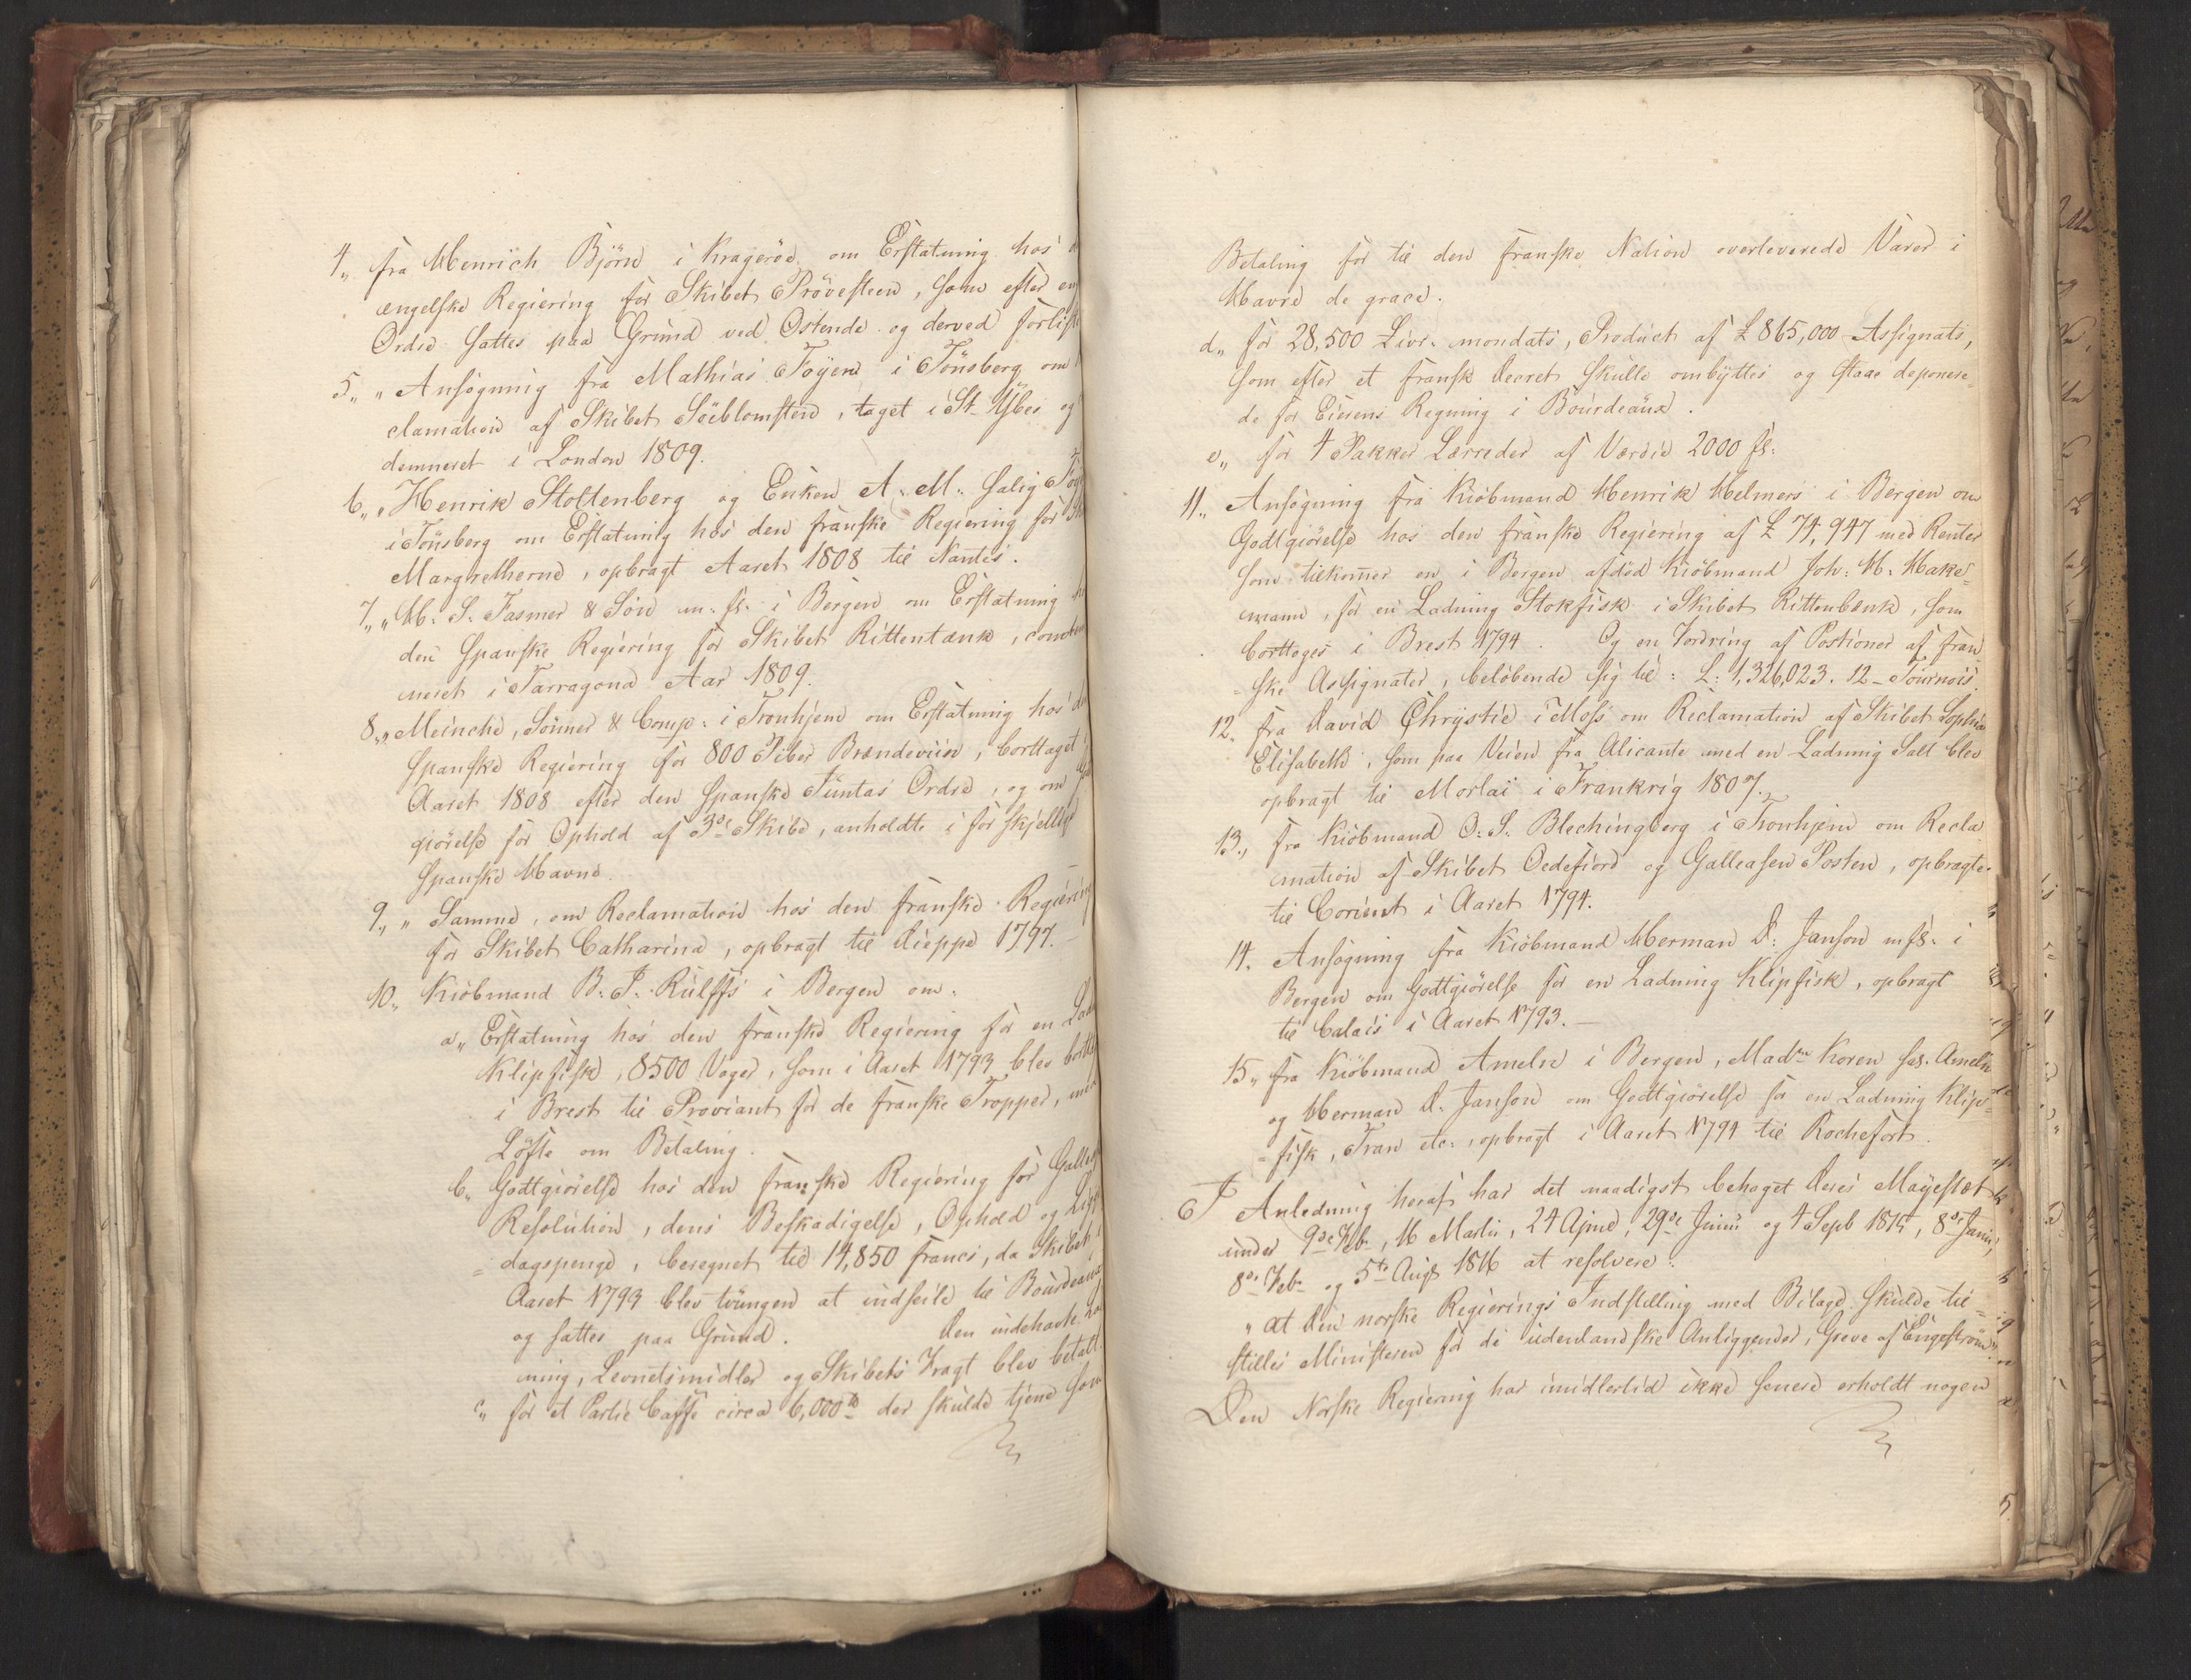 4, fra Henrich Björn i Krageröe om Erstatning hos
engelske Regiering for Skibet Prövesteen, som efter en
Ordre sattes paa Grund ved Ostende og derved forliste
5, " Ansögning fra Mathias Föyen i Tönsberg om
clamation af Skibet Söeblomsten, taget i St. Ybes og
demneret i London 1809.
6, " Henrik Stoltenberg og Enken A. M. salig
i Tönsberg om Erstatning hos den franske Regiering for
Margretherne, opbragt Aaret 1808 til Nantes.
7, " H. S. Fasmer & Sön m. fl. i Bergen om Erstatning
den spanske Regiering for Skibet Rittentænk, condem
neret i Tarragona Aar 1809.
8, " Meincke, Sönner & Comp: i Tronhjem om Erstatning hos
spanske Regiering for 800 Piber Brændeviin, borttaget
Aaret 1808 efter den spanske Juntas Ordre, og om
giörelse for Ophold af 3de Skibe, anholdte i forskjellige
spanske Havne.
9, " Samme, om Reclamation hos den franske Regiering
for Skibet Catharina, opbragt til Dieppe 1797. —
10, Kiöbmand B. J. Rulffs i Bergen om:
a, Erstatning hos den franske Regiering for en
Klipfisk, 8500 Voger, som i Aaret 1793 blev
i Brest til Proviant for de franske Tropper, med
Löfte om Betaling.
b, Godtgiörelse hos den franske Regiering for
Resolution, dens Beskadigelse, Ophold og
= dagspenge, beregnet til 14,850 francs, da Skibet i
Aaret 1793 blev tvungen at indseile til Bourdeaux
og sattes paa Grund. Den indehavte
ning, Levnetsmidler og Skibets Fragt blev betalt.
c, for et Partie Caffe circa 6,000 lb der skulde tjene som
Betaling for til den franske Nation overleverede Varer i
Havre de grace.
d, for 28,500 Livr. mondats, Product af £ 865,000 Assignats,
som efter et fransk Decret skulle ombyttes og staae deponere=
de for Eierens Regning i Bourdeaux.
e, for 4 Pakker Lærreder af Værdie 2000 fl.
11, Ansögning fra Kiöbmand Henrik Helmers i Bergen om
Godtgiörelse hos den franske Regiering af £ 74,947 med Renter
som tilkommer en i Bergen afdöd Kiöbmand Joh: H: Hake=
mann, for en Ladning Stokfisk i Skibet Rittenbænk, som
borttoges i Brest 1794. Og en Fordring af Portioner af fran
= ske Assignater, belöbende sig til: L: 1,326,023. 12 - Tournois.
12. fra David Chrystie i Moss om Reclamation af Skibet Sophia
Elisabeth, som paa Veien fra Alicante med en Ladning Salt blev
opbragt til Morlai i Frankrig 1807.
13, fra Kiöbmand O. S. Blechingberg i Tronhjem om Recla
mation af Skibet Oedefiord og Galleasen Posten, opbragte
til Corient i Aaret 1794.
14. Ansögning fra Kiöbmand Herman D. Janson mfl. i
Bergen om Godtgiörelse for en Ladning Klipfisk, opbragt
til Calais i Aaret 1793. —
15, fra Kiöbmand Ameln i Bergen, Madme Koren fød. Ameln
og Herman D. Janson om Godtgiörelse for en Ladning Klip=
= fisk, Tran etc: opbragt i Aaret 1794 til Rochefort.
I Anledning heraf har det naadigst behaget Deres Mayestæt
under 9de Feb, 16 Martii, 24 April, 29de Junii og 4 Sepb 1815, 8de Janu,
8de Feb og 5te Aug 1816 at resolvere:
" at den norske Regierings Indstilling med Bilage skulde til=
stilles Ministeren for de udenlandske Anliggender, Greve af Engeström"
Den Norske Regiering har imidlertid ikke senere erholdt nogen